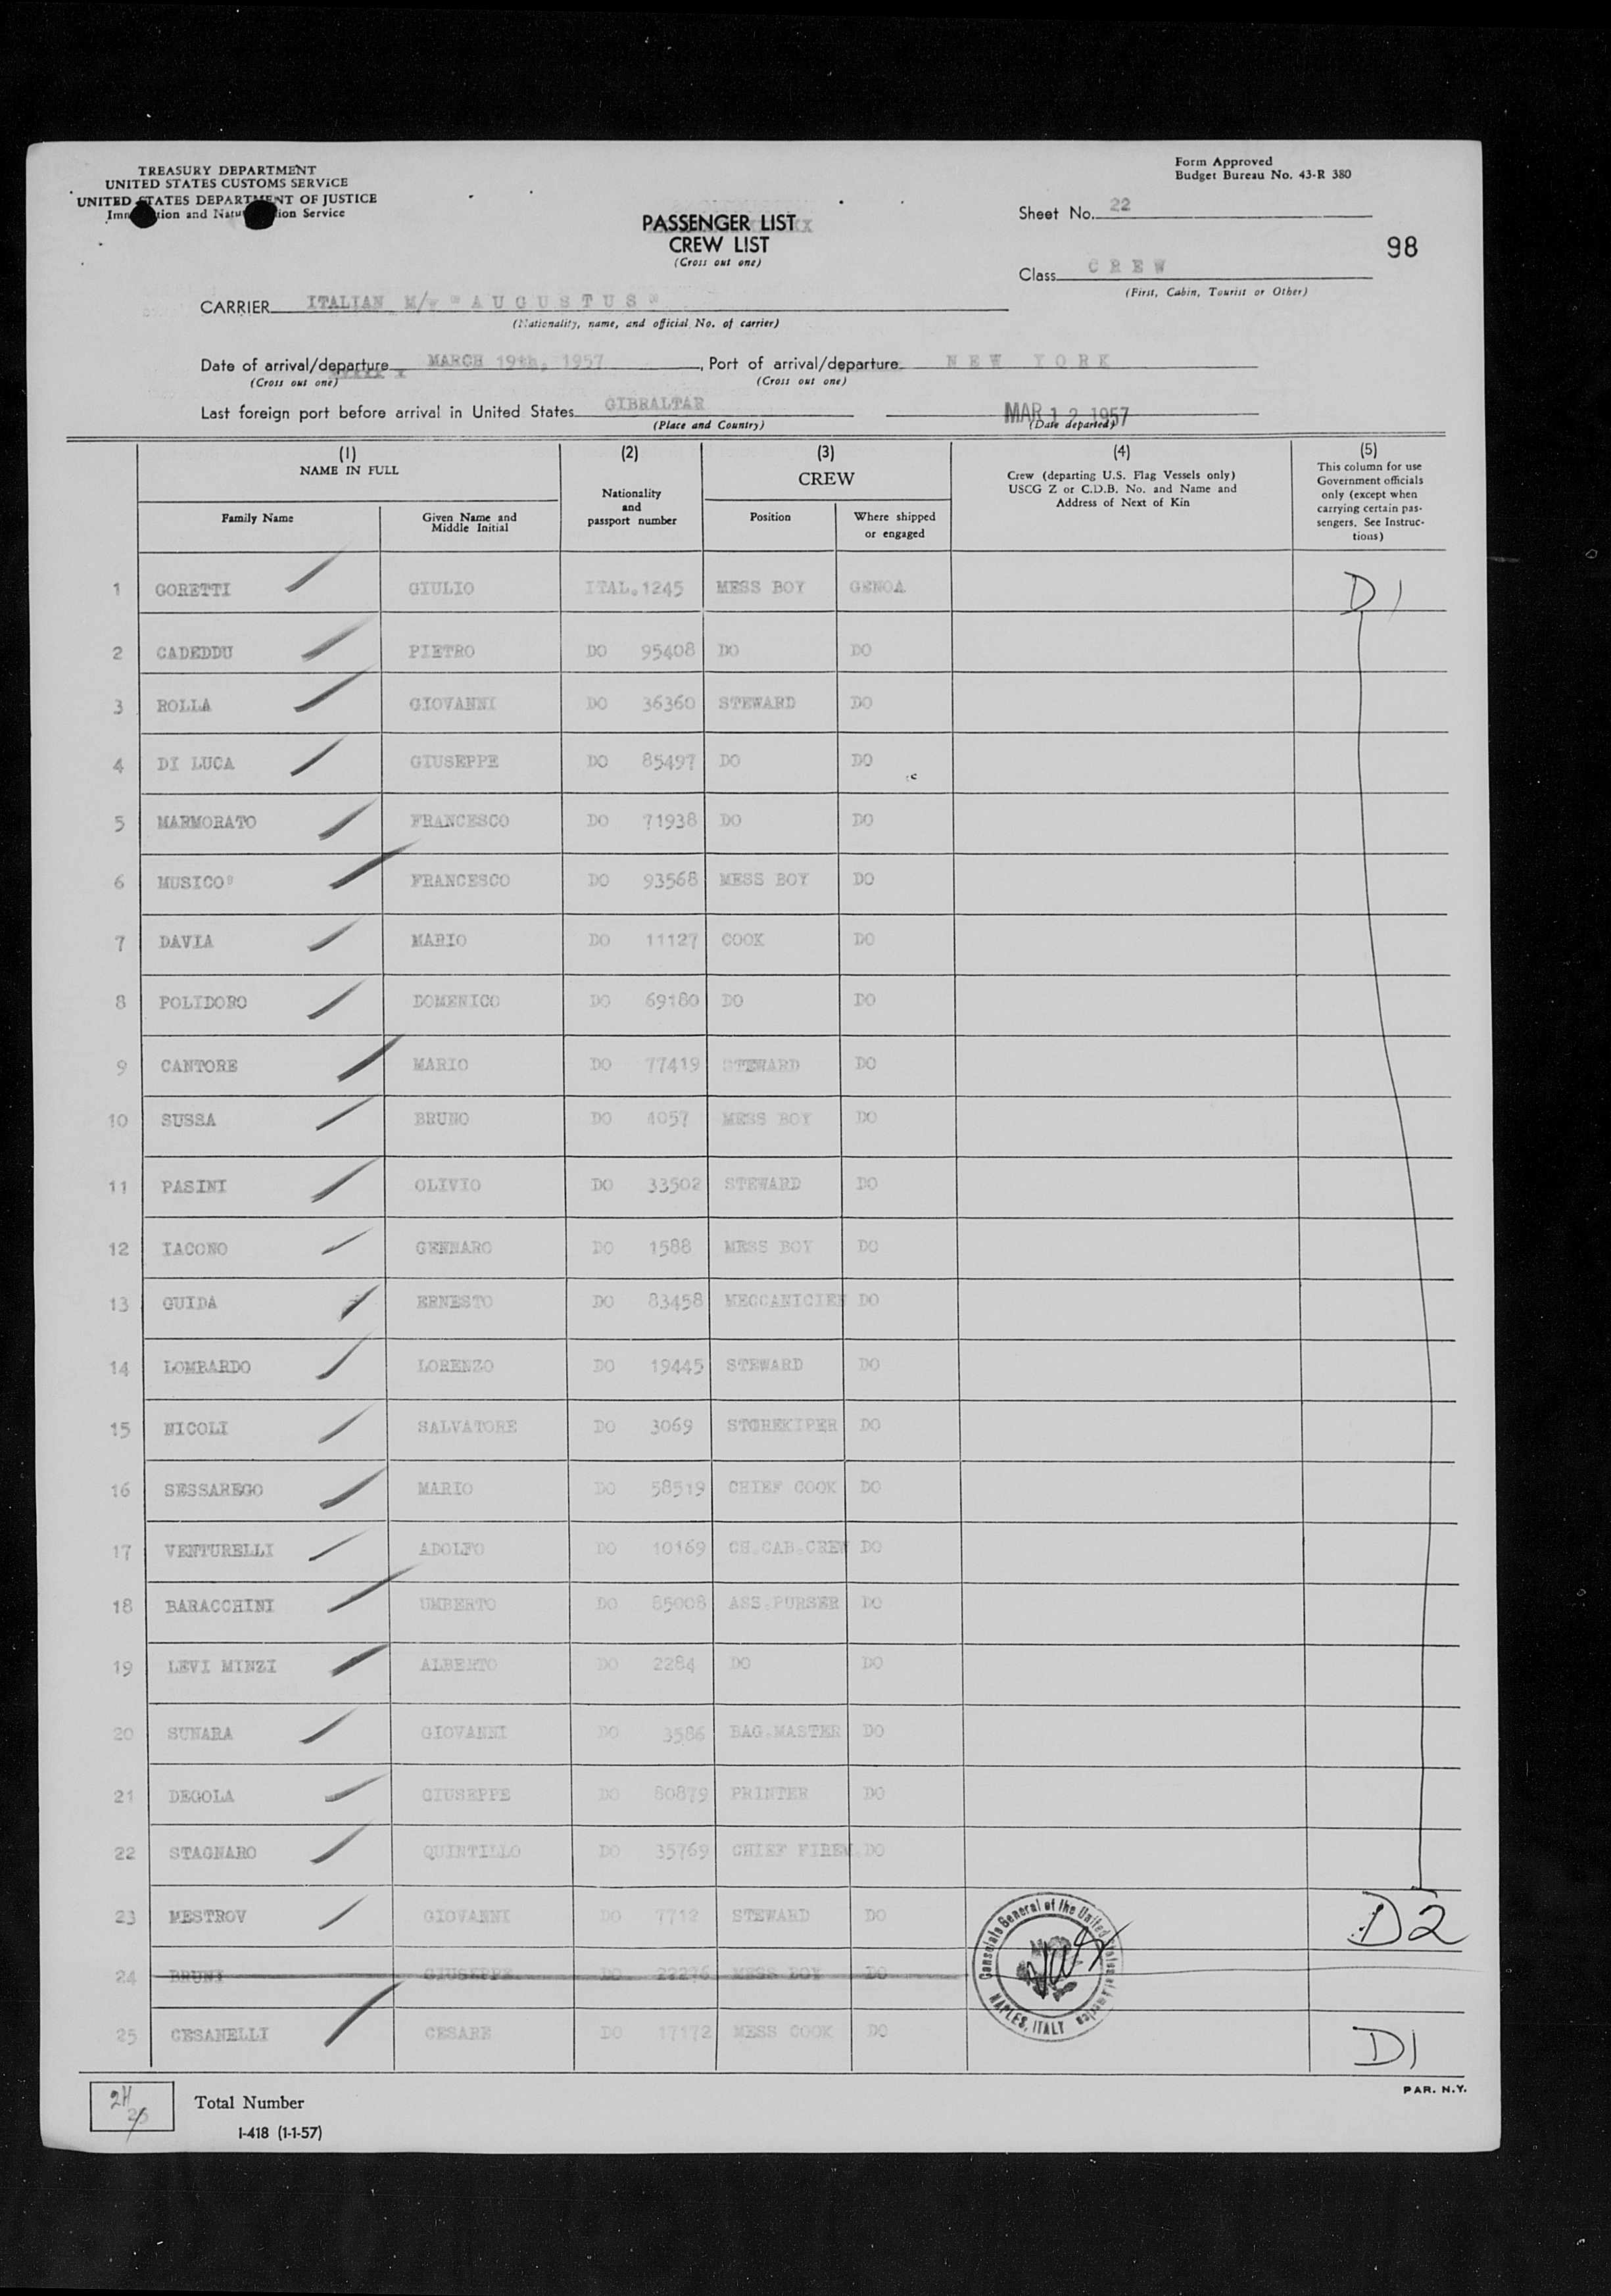 TREASURY DEPARTMENT
UNITED STATES CUSTOMS SERVICE
UNITED STATES DEPARTMENT OF JUSTICE
Immigration and Naturalization Service
Form Approved
Budget Bureau No. 43-R 380
PASSENGER LIST
CREW LIST
(Cross out one)
Sheet No. 22
98
Class CREW
(First, Cabin, Tourist or Other)
CARRIER ITALIAN M/v "AUGUSTUS"
(Nationality, name, and official No. of carrier)
Date of arrival/departure MARCH 19th, 1957, Port of arrival/departure NEW YORK
(Cross out one) (Cross out one)
Last foreign port before arrival in United States GIBRALTAR MAR 12 1957
(Place and Country) (Date departed)
(1) (2) (3) (4) (5)
NAME IN FULL
Family Name
Given Name and Middle Initial
Nationality and passport number
CREW
Position
Where shipped or engaged
Crew (departing U.S. Flag Vessels only)
USCG Z or C.D.B. No. and Name and
Address of Next of Kin
This column for use
Government officials
only (except when
carrying certain pas-
sengers. See Instruc-
tions)
1 GORETTI GIULIO ITAL.1245 MESS BOY GENOA D1
2 CADEDDU PIETRO DO 95408 DO DO
3 ROLLA GIOVANNI DO 36360 STEWARD DO
4 DI LUCA GIUSEPPE DO 85497 DO DO
5 MARMORATO FRANCESCO DO 71938 DO DO
6 MUSICO' FRANCESCO DO 93568 MESS BOY DO
7 DAVIA MARIO DO 11127 COOK DO
8 POLIDORO DOMENICO DO 69180 DO DO
9 CANTORE MARIO DO 77419 STEWARD DO
10 SUSSA BRUNO DO 4057 MESS BOY DO
11 PASINI OLIVIO DO 33502 STEWARD DO
12 IACONO GENNARO DO 1588 MESS BOY DO
13 GUIDA ERNESTO DO 83458 MECCANICIEN DO
14 LOMBARDO LORENZO DO 19445 STEWARD DO
15 NICOLI SALVATORE DO 3069 STOREKIPER DO
16 SESSAREGO MARIO DO 58519 CHIEF COOK DO
17 VENTURELLI ADOLFO DO 10169 CH.CAB.CREW DO
18 BARACCHINI UMBERTO DO 85008 ASS.PURSER DO
19 LEVI MINZI ALBERTO DO 2284 DO DO
20 SUNARA GIOVANNI DO 3586 BAG.MASTER DO
21 DEGOLA GIUSEPPE DO 80879 PRINTER DO
22 STAGNARO QUINTILLO DO 35769 CHIEF FIREM. DO
23 MESTROV GIOVANNI DO 7712 STEWARD DO D2
24 BRUNI GIUSEPPE DO 22276 MESS BOY DO
25 CESANELLI CESARE DO 17172 MESS COOK DO D1
Consulate General of the United States of America
NAPLES, ITALY
24
25
Total Number
I-418 (1-1-57)
PAR. N.Y.